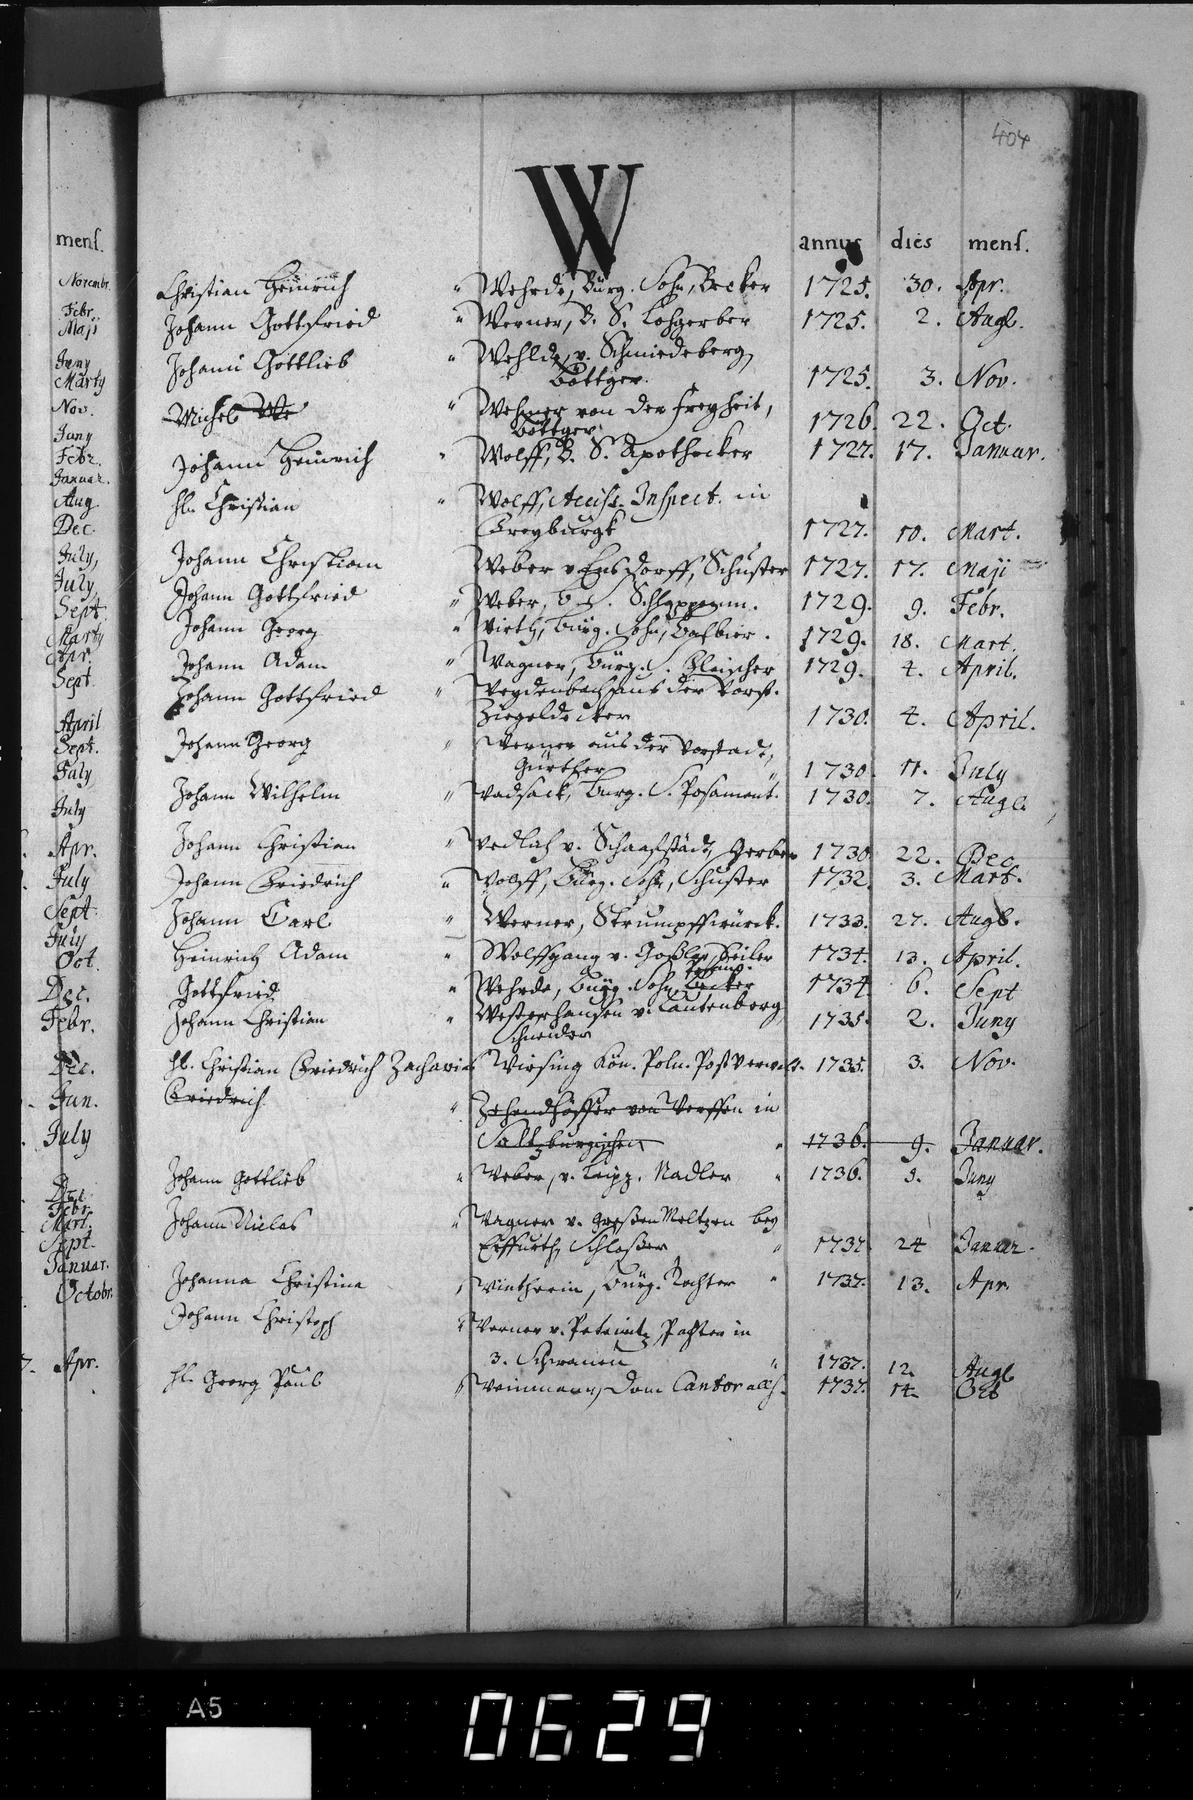 404
W
annus dies mens.
Christian Heinrich " Wehrde, Bürg. Sohn, Becker 1725. 30. Apr.
Johann Gottfried " Werner, B. S. Lohgerber 1725. 2. Augl.
Johann Gottlieb " Wehlde, v. Schmiedeberg,
Böttger. 1725. 3. Nov.
Michel " Wehner von der Freyheit,
Böttger. 1726. 22. Oct.
Johann Heinrich " Wolff, B. S. Apothecker 1727. 17. Januar.
H. Christian " Wolff, Acciss. Inspect. in
Freyburgk 1727. 10. Mart.
Johann Christian Weber v. Ensdorff, Schuster 1727. 17. Maji
Johann Gottfried " Weber, 1729. 9. Febr.
Johann Georg " Wirth, Bürg. Sohn, Balbier. 1729. 18. Mart.
Johann Adam " Wagner, Bürg. S. Fleischer 1729. 4. April.
Johann Gottfried " Weydenbach aus der Vorst.
Ziegeldecker 1730. 4. April.
Johann Georg " Werner aus der Vorstadt,
Gürtler 1730. 11. July
Johann Wilhelm " Wadsack, Burg. S. Posament. 1730. 7. Augl.
Johann Christian " Wedlich v. Schaafstädt, Gerber 1730 22. Dec.
Johann Friedrich " Wolff, Bürg. Sohn, Schuster 1732. 3. Mart.
Johann Carl " Werner, Strumpffwürck. 1733. 27. Augl.
Heinrich Adam " Wolffgang v. Goßlar, Seiler 1734. 13. April.
Gottfried " Wehrde, Bürg. Sohn, Becker 1734. 6. Sept
Johann Christian " Westerhausen v. Lautenberg,
Schneider 1735. 2. Juny
H. Christian Friedrich Zacharias Wirsing Kön. Poln. Post Verwalt. 1735. 3. Nov.
Friedrich " Zehendhöffer von Werffen in
Saltzburgischen " 1736. 9. Januar.
Johann Gottlieb " Weber, v. Leipz. Nadler " 1736. 3. Juny
Johann Niclas " Wagner v. Großen Meltzen bey
Erffurth, Schloßer " 1737. 24 Januar.
Johanna Christina " Wintherin, Bürg. Tochter " 1737. 13. Apr.
Johann Christoph " Werner v. Pachter in
3. Schwanen " 1737. 12. Augl
H. Georg Paul " Weinmann, Dom Cantor 1737. 14. Oct
mens.
Novembr.
Febr.
Maji
Juny
Marty
Nov.
Juny
Febr.
Januar.
Aug
Dec.
July,
July,
Sept.
Marty
Apr.
Sept.
April
Sept.
July
July
Apr.
July
Sept.
July
Oct.
Dec.
Febr.
Dec.
Jan.
July
Dec.
Febr.
Mart.
Sept.
Januar.
Octobr.
7. Apr.
A5
0629